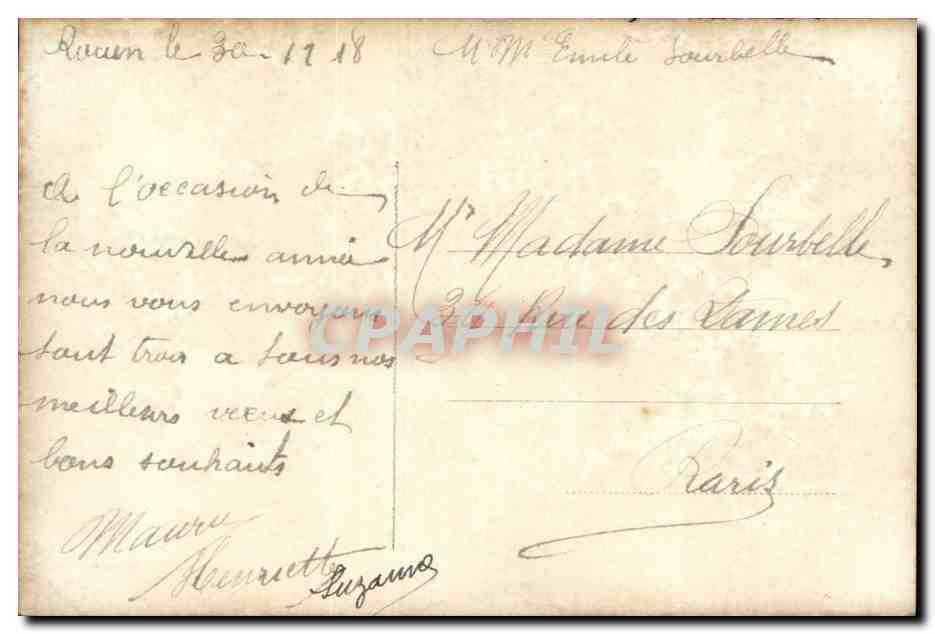 Rouen le 30 - 12 18
M Mme Emile Sourbelle
A l'occasion de
la nouvelle année
nous vous envoyons
tout trois a tous nos
meilleurs vœux et
bons souhaits
Maurice
Henriette
Suzanne
Mr Madame Sourbelle
Rue des Dames
Paris
CPAPHIL